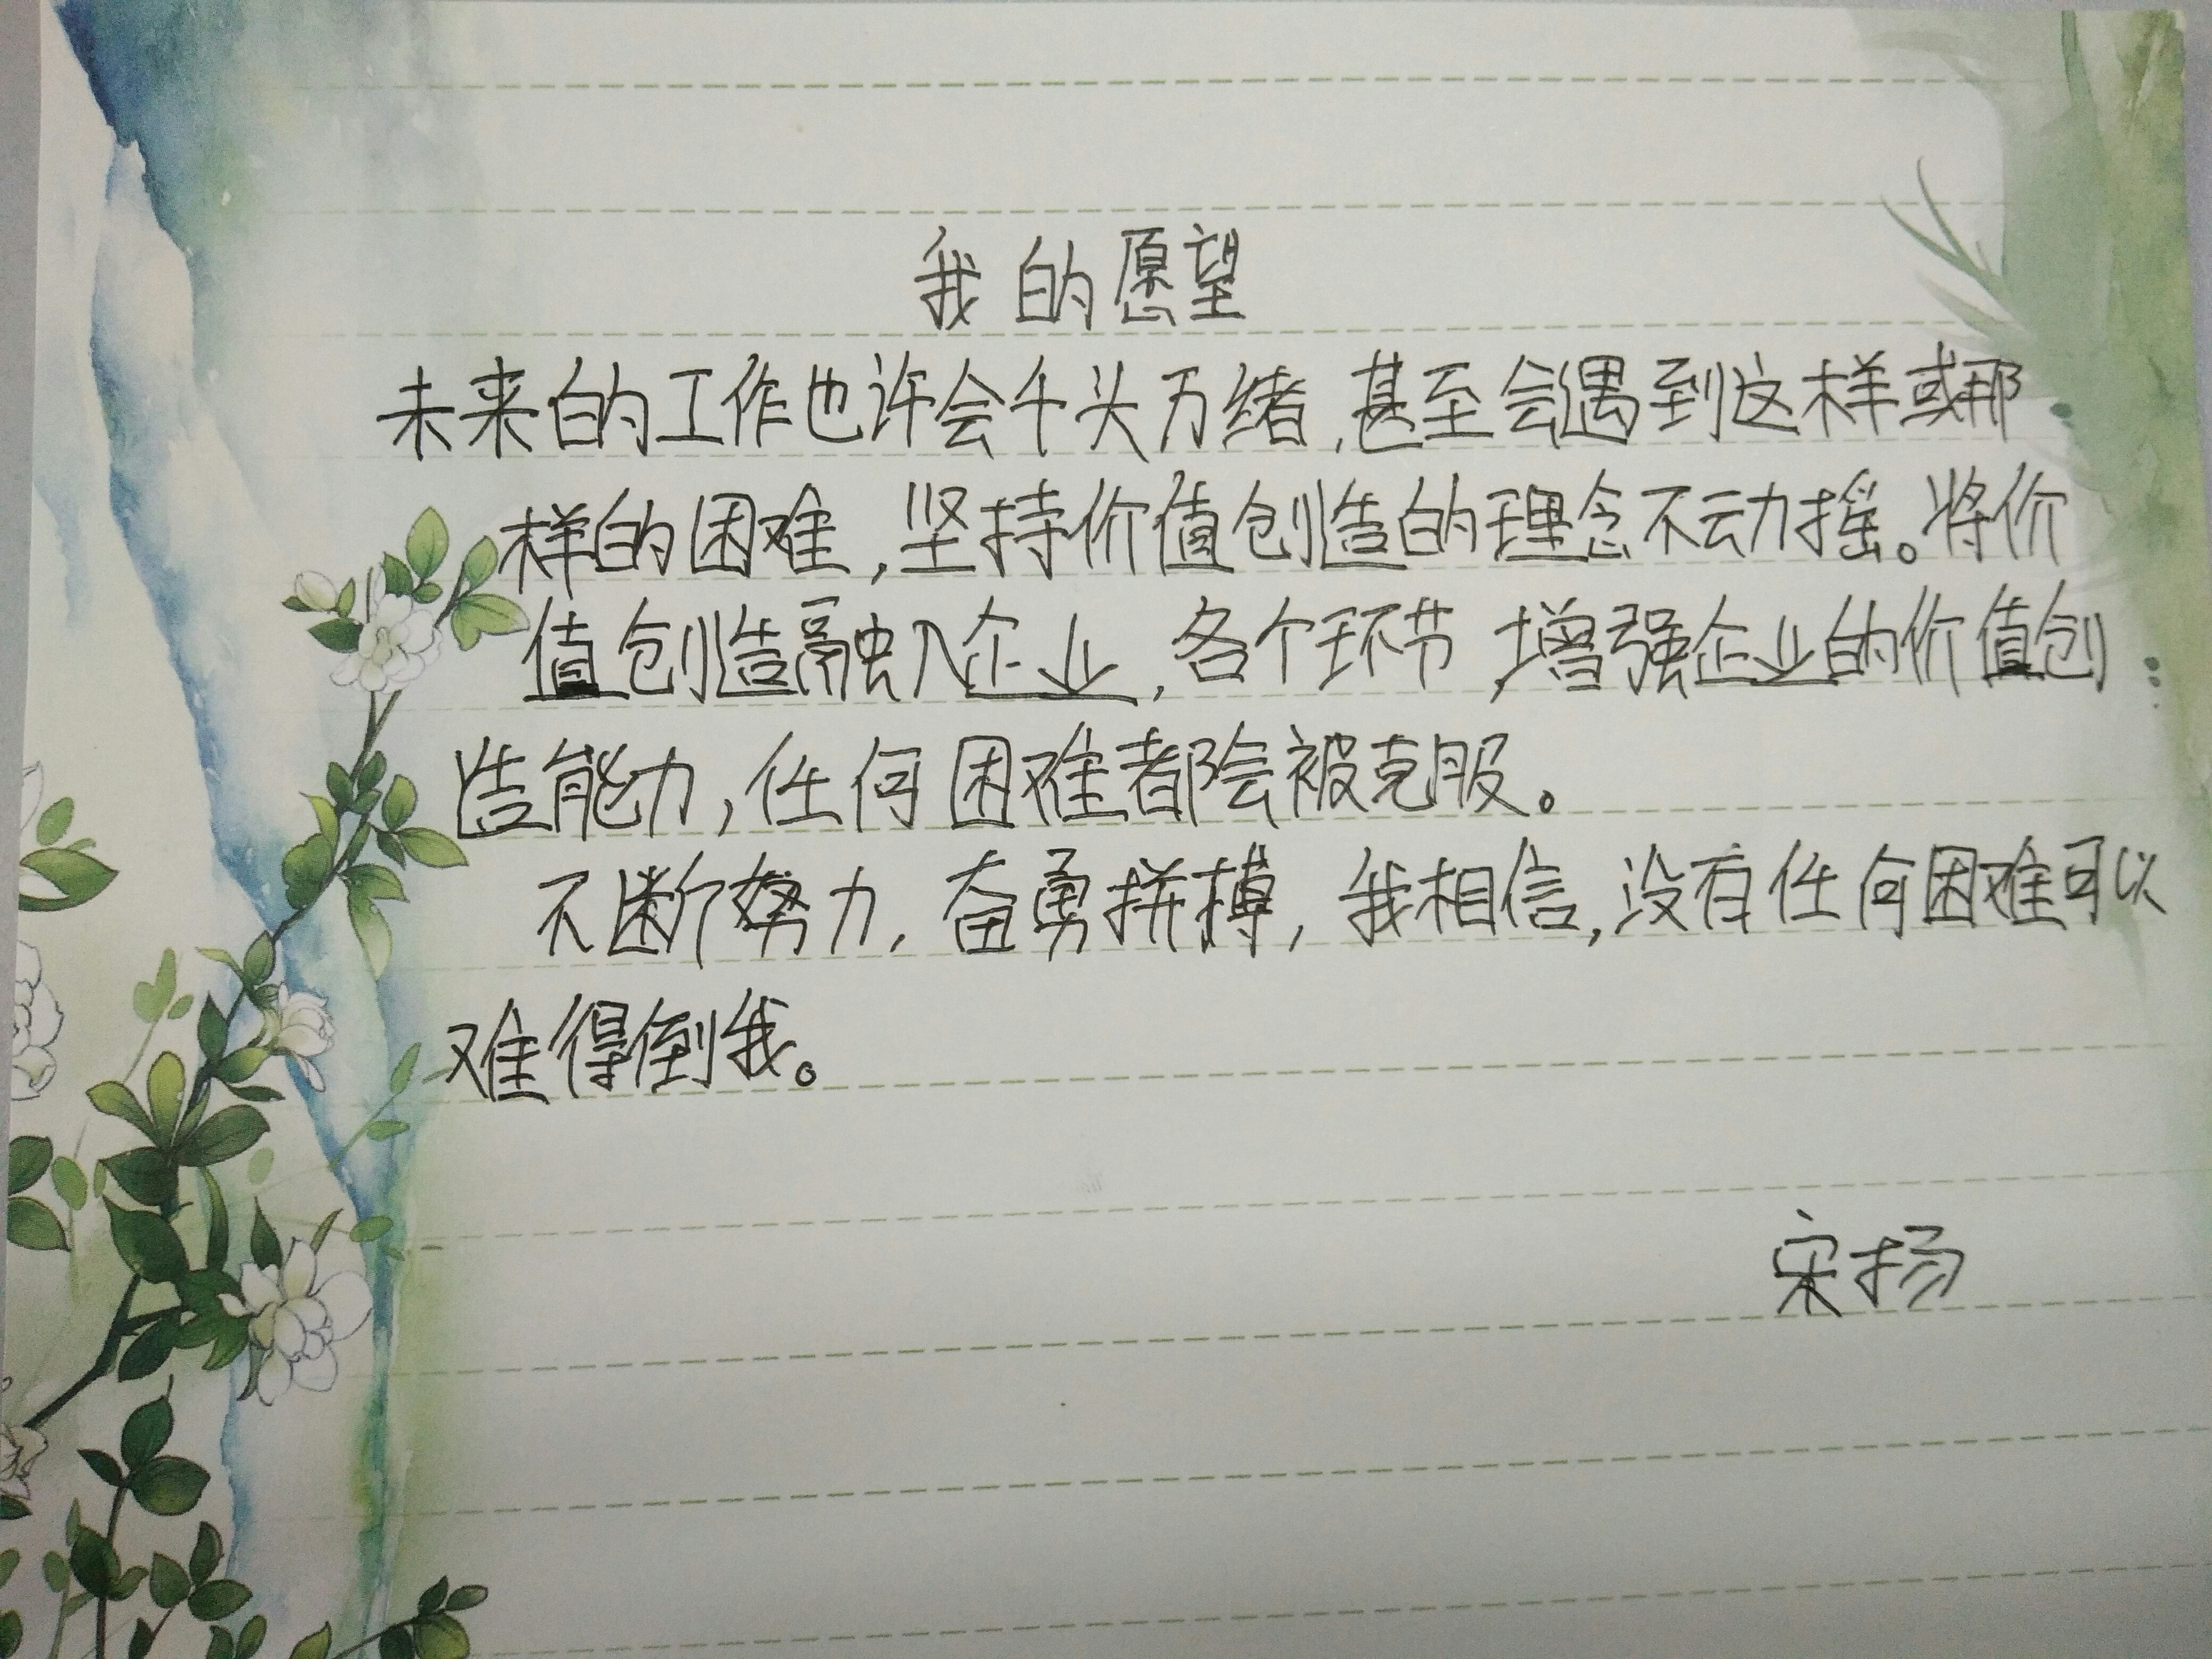 我的愿望
未来的工作也许会千头万绪,甚至会遇到这样或那
样的困难,坚持价值创造的理念不动摇。将价
值创造融入企业,各个环节,增强企业的价值创
造能力,任何困难都会被克服。
不断努力,奋勇拼搏,我相信,没有任何困难可以
难得倒我。
宋扬